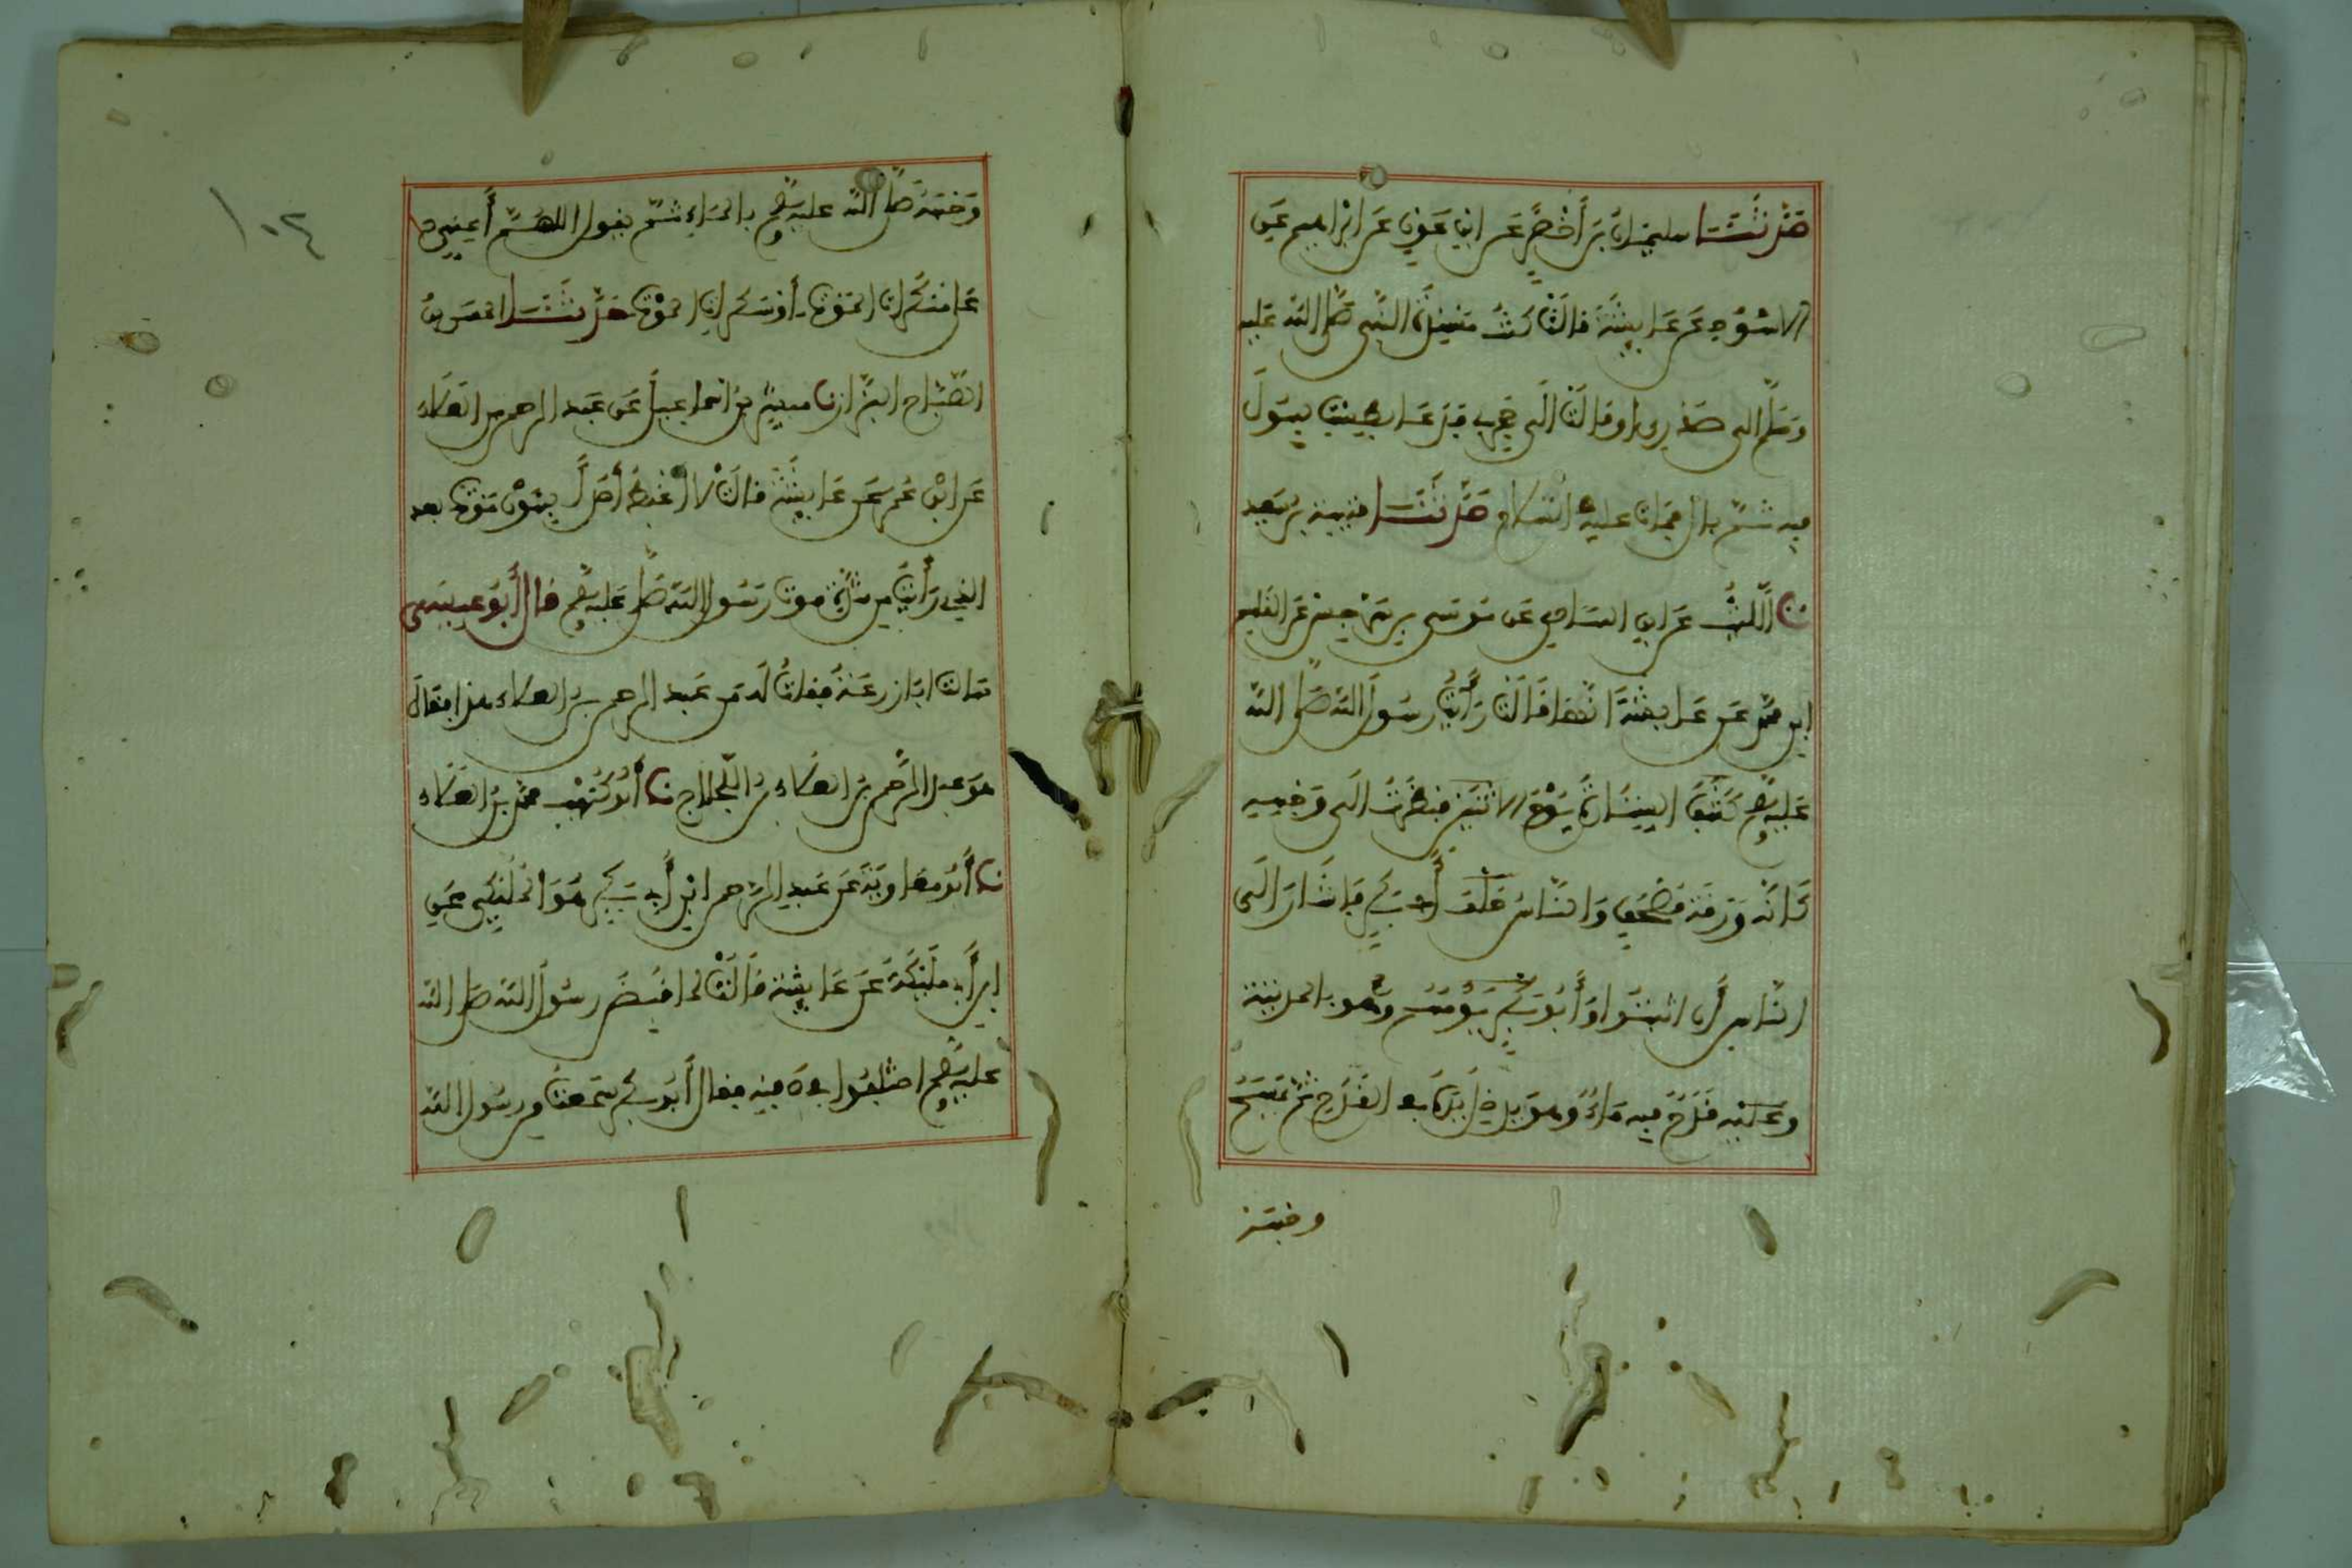 حَدَّثَنَا سليم بنُ أَخْضَرَ عَن ابنِ عَوْنٍ عَن ابْرَاهِيم عَنِ
الاسْوَدِ عَن عَايِشَةَ قَالَتْ كُنْتُ مُسْنِدَةً النَّبِي صَلَّى اللّه عَليه
وَسَلَّم الى صَدْرِى او قالَتْ الَى حَجرِى فدَعَا بِطِسْتٍ لِيبُولَ
فيه ثمّ بال فمات عليه السّلام حَدَّثَنَا قتيبة بن سَعِيد
نا الّليثُ عَن ابنِ الهَادِ عَن مُوسَى بن سَرْجِس عَن القاسم
ابن محمّد عَن عَايشَةَ انّها قَالَتْ رَأَيْتُ رسُولَ اللّه صَلَّى اللّه
عَليه وسلم
كَأَنّه وَرَقَة مُصْحَفٍ وَالنّاسُ خَلْفَ أبى بَكرٍ فاشَارَ الَى
النّاسِ أَن اثبتُوا وَأَبُو بَكر يَؤمّهُمْ وهُو بالموت
وعنده قَدَحٌ فيه مَاءٌ وهو يدخِلُ يَدَهُ في القَدَحِ ثمّ يَمْسَحُ
وجهه
١٠٤
وَجْهَهُ صَلَّى اللّه عليه وسلم بالمَاءِ ثمّ يقول اللّهُمَّ أَعِنِّي
عَلى مُنْكَراتِ المَوْتِ أوْ سَكَراتِ المَوْتِ حَدَّثَنَا الحسَن بنُ
الصّبّاح البَزّار نا مبشّر بنُ اسماعيلَ عَن عَبد الرحمن بن العَلاء
عَن ابنِ عُمرَ عَن عَايشَةَ قالَتْ لا أَغْبِطُ أحَداً بِهَوْنِ مَوْتٍ بعد
الذِي رَأَيْتُ مِن شِدَّةِ موت رَسُول اللّه صَلى عَليه وسلم قال أَبُو عِيسَى
سَالتُ ابا زرعَةَ فقلتُ لَه مَن عَبد الرحمن بن العَلاء هذا فقالَ
هوَ عبد الرّحمن بنُ العَلاء بنِ اللّجلاج نا أَبُو كُرَيْب محمّد بنُ العَلاء
نا أبُو معَاوِيَة عَن عَبدِ الرّحمن ابنِ أبي بَكر هُوَ ابن المُلَيْكِي عَن
ابنِ أبي مُلَيْكَةَ عَن عَايشَة قَالَتْ لما قُبِضَ رسُولُ اللّه صَلى اللّه
عليه وسلم اخْتلفُوا في دَفنِه فقال أبُو بَكر سَمعتُ مِن رسُولِ اللّه